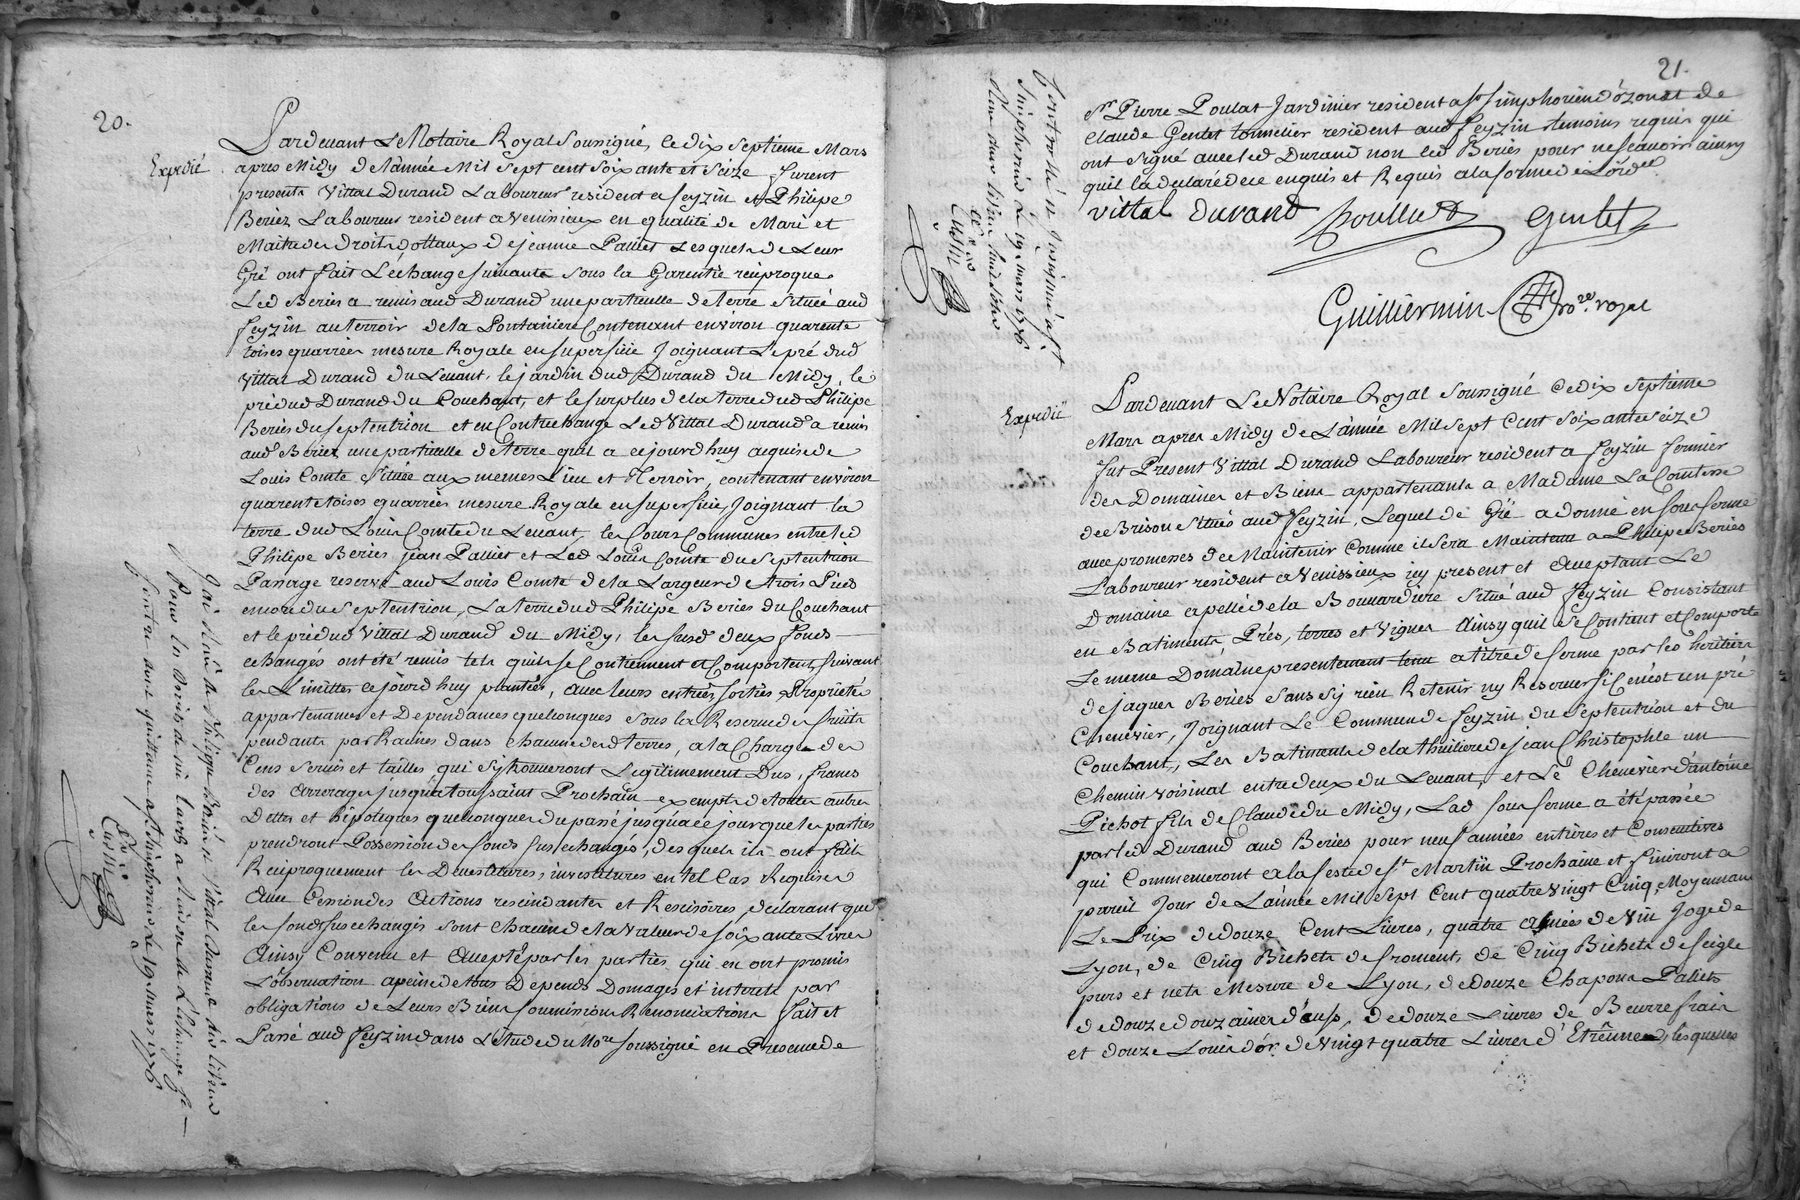 20.
Expedié
Pardevant Le Notaire Royal Soussigné, le dix septieme Mars
apres Midy de L'année Mil sept cent soixante et seize furent
presents Vittal Durand Laboureur resident a feyzin et Philipe
Beriez Laboureur resident a Venissieux en qualité de Mary et
Maitre des Droits dottaux de jeanne Pallet Lesquels de Leur
Gré ont fait L'échange suivante sous la Garentie reciproque
Led Beries a remis aud Durand une particelle de terre Située aud
feyzin au terroir de la Fontaniere Contenant environ quarente
toises quarrées mesure Royale en superficie Joignant Le pré dud
Vittal Durand du Levant, le jardin dud Durand du Midy, le
pré dud Durand du Couchant, et le surplus de la terre dud Philipe
Beries du septentrion et en Contrechange Led Vittal Durand a remis
aud Beriez une particelle de terre quil a cejourdhuy acquise de
Louis Comte située aux memes Lieu et Terroir, contenant environ
quarente toises quarrées mesure Royale en superficie Joignant la
terre dud Louis Comte du Levant, les Cours Communes entre led
Philipe Beries jean Palliet et Led Louis Comte du Septentrion
Passage reservé aud Louis Comte de la Largeur de trois Pieds
encore du Septentrion, La terre dud Philipe Beries du Couchant
et le pré dud Vittal Durand du Midy, les susd deux fonds
echangés ont été remis tels quils se Contiennent et Comportent, suivant
les Limittes cejourdhuy plantées, avec leurs entrées, sorties Proprietés
appartenances et Dependances quelconques sous la Reserve des fruits
pendants par Racines dans chacune desd terres, a la Charge des
Cens servis et tailles qui sy trouveront Legitimement Dus, francs
des Arrerages jusqu'a toussaint Prochain exempts de toutes autres
Dettes et hipoteques quelconques du passé jusqu'a ce jour que les parties
prendront Possession des fonds sus echangés, desquels ils ont fait
Reciproquement les Devestitures, investitures en tel Cas Requises
Avec Cession des Actions rescindantes et Rescisoires, declarant que
les fonds sus echangés sont chacun de la valeur de soixante Livres
Ainsy Convenu et Accepté par les parties qui en ont promis
L'observation a peine de tous Depends Domages et interets par
obligations de Leurs Biens soumissions Renonciations fait et
Passé aud feyzin dans L'etude du Nore soussigné en Presence de
21.
Sr Pierre Poulat Jardinier resident a St simphorien d'ozon et de
Claude Gentet tonnelier resident aud feyzin temoins requis qui
ont signé avec led Durand non led Beriés pour ne scavoir ainsy
quil la declaré de ce enquis et Requis a la forme de L'ord.ce
vittal durand Poullat Gentet
Guilliermin no.re royal
Expedié
Pardevant Le Notaire Royal soussigné ce dix septieme
Mars apres Midy de L'année Mil sept Cent soixante seize
fut Present Vittal Durand Laboureur resident a feyzin fermier
des Domaines et Biens appartenants a Madame La Comtesse
de Brison situés aud feyzin, Lequel de Gré a donné en sous ferme
avec promesses de Maintenir comme il sera Maintenu a Philipe Beriés
Laboureur resident a Venissieux icy present et acceptant Le
Domaine apellé de la Bouvardiere situé aud feyzin Consistant
en Batiments, Prés, terres et Vignes Ainsy quil se Contient et Comporte
Le meme Domaine presentement tenu a titre de ferme par les heritiers
de jaques Beriés sans sy rien Retenir ny Reserver si Ce n'est un pré
Chenevier, Joignant Le Commun de feyzin du Septentrion et du
Couchant, Les Batiments de la thuiliere de jean Christophle un
Chemin voisinal entre deux du Levant, et Le Chenevier d'antoine
Pichot fils de Claude du Midy, Lad sous ferme a été passée
par led Durand aud Beries pour neuf années entieres et Consecutives
qui Commenceront a la feste de St Martin Prochaine et finiront a
pareil Jour de L'année Mil sept Cent quatre vingt Cinq, Moyennant
Le Prix de douze Cent Livres, quatre Asnées de Vin Joge de
Lyon, de Cinq Bichets de froment, de Cinq Bichets de seigle
purs et nets Mesure de Lyon, de douze Chapons Paliets
de douze douzaines d'eufs, de douze Livres de Beurre frais
et douze Louis d'or de Vingt quatre Livres d'Etrennes, lesquelles